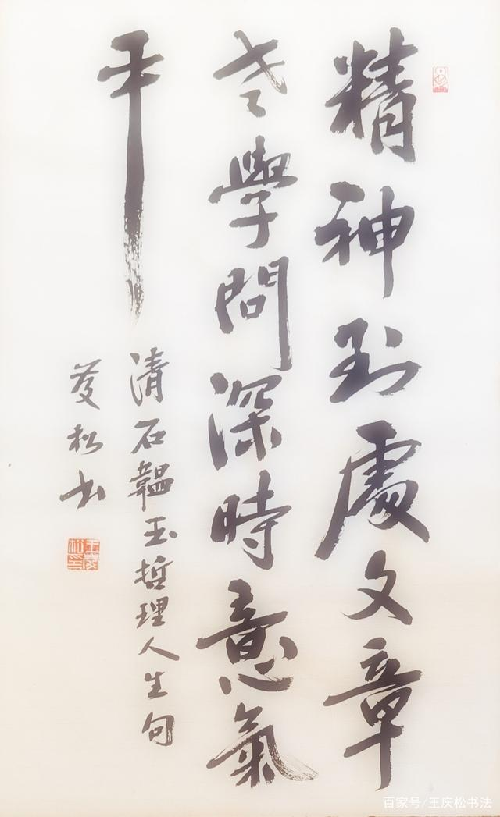 精神到處文章
老學問深時意氣
平
清石韞玉哲理人生句
慶松书
百家号/王庆松书法